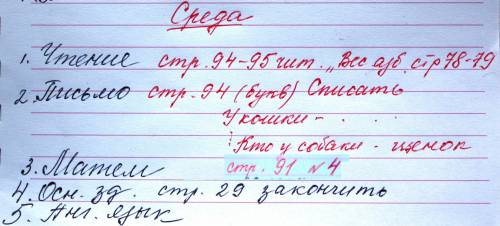 Среда
1. Чтение стр. 94-95 чит. „Вес азб. стр 78-79
2. Письмо стр. 94 (букв) Списать
У кошки - . . .
Кто у собаки - щенок
3. Матем стр. 91 №4
4. Осн. зд. стр. 29 закончить
5. Анг. язык